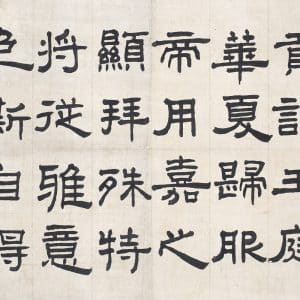 貢計王庭
華夏歸服
帝用嘉之
顯拜殊特
將従雅意
色斯自得